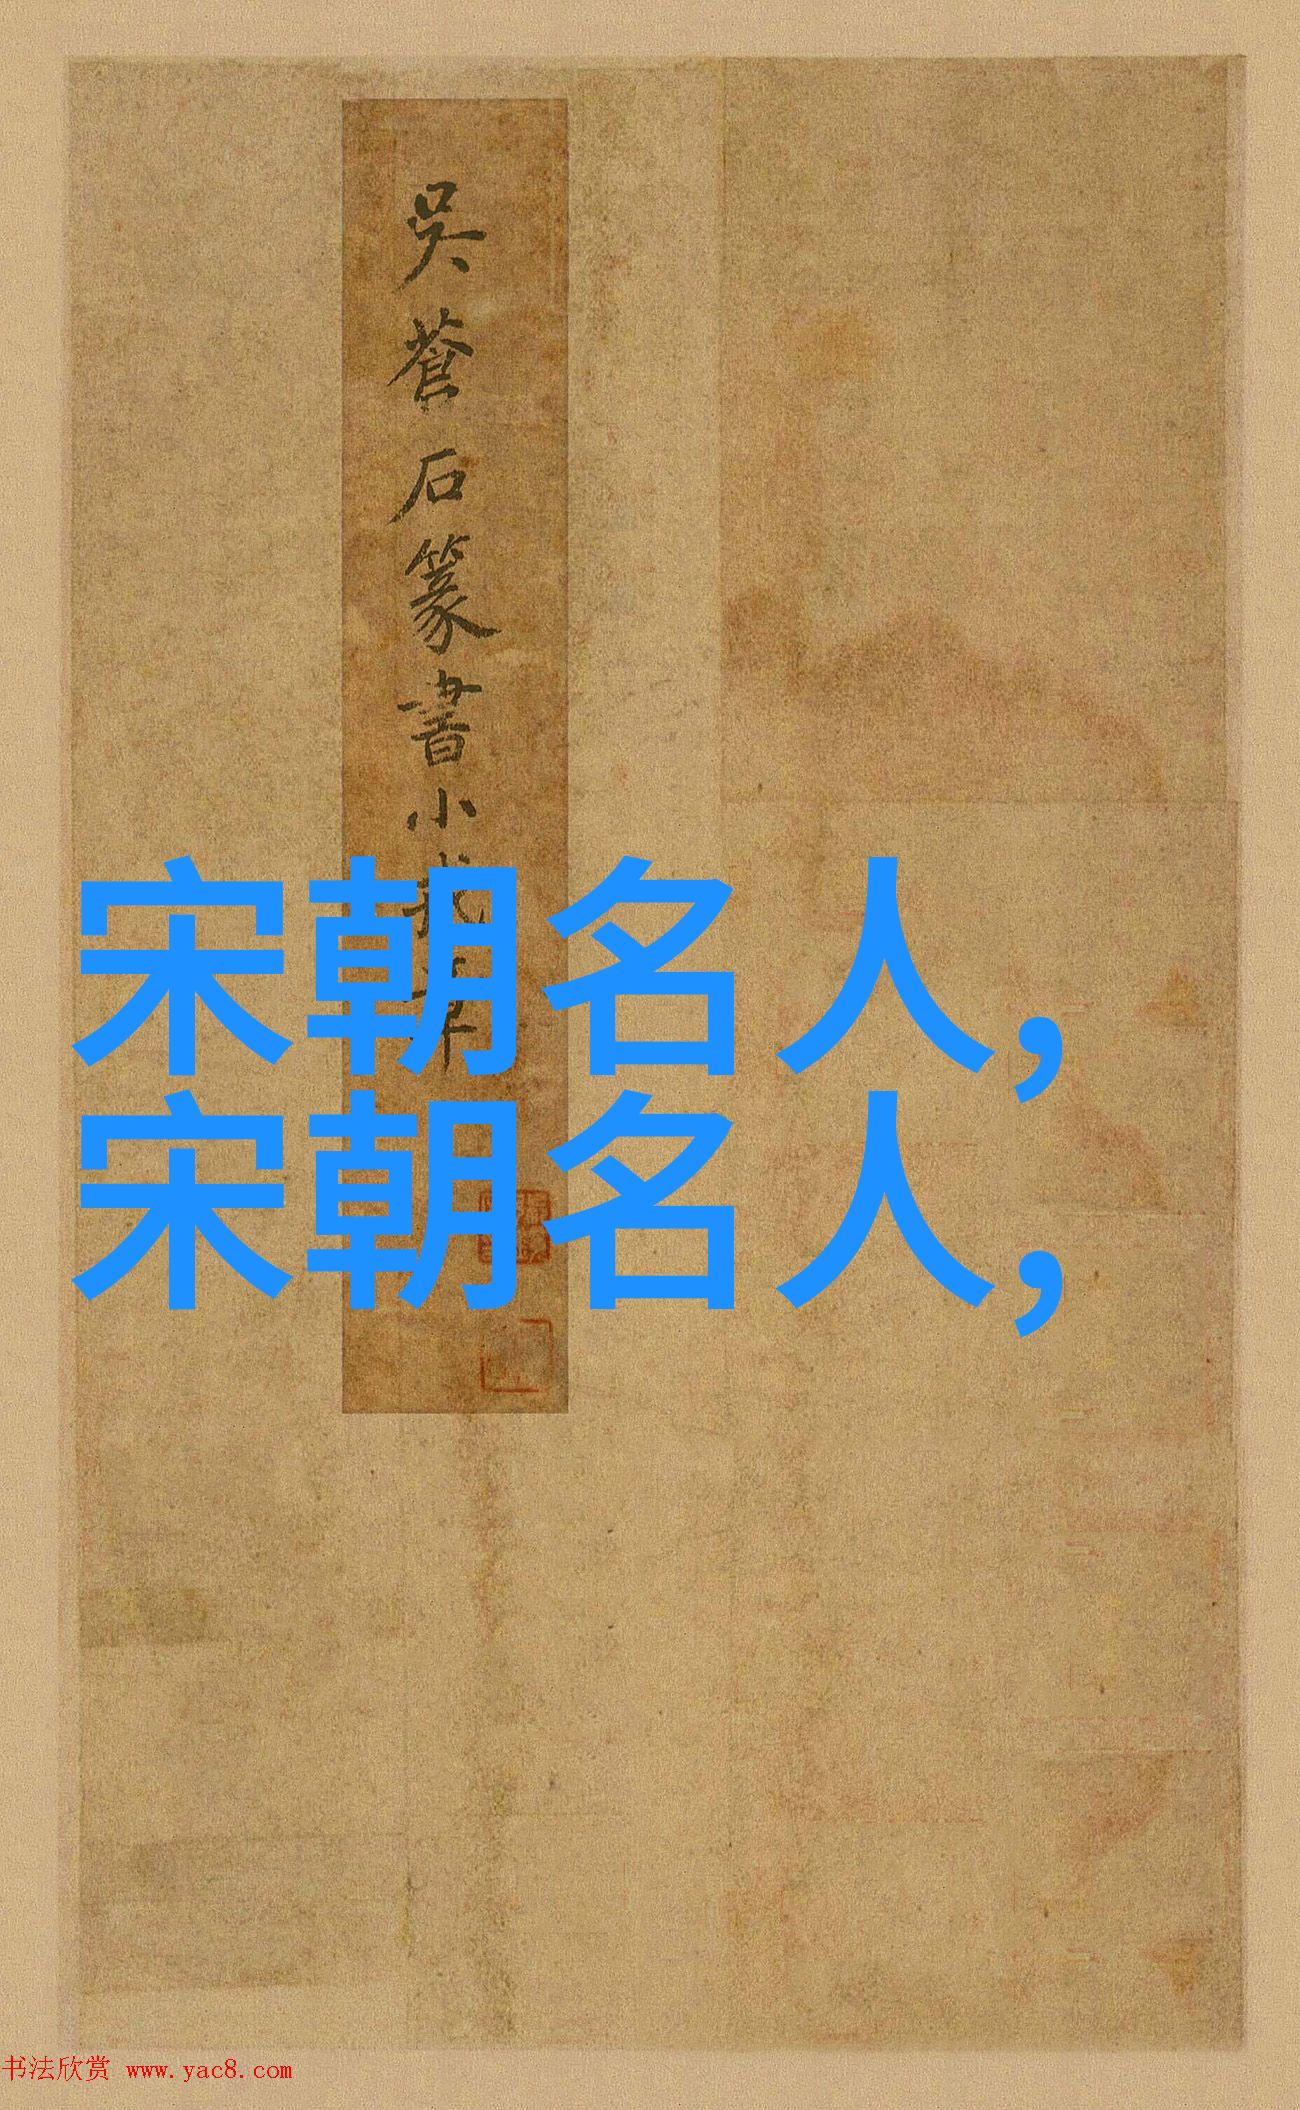 吳蒼石篆書小
宋朝名人,
宋朝名人,
书法欣赏 www.yac8.com